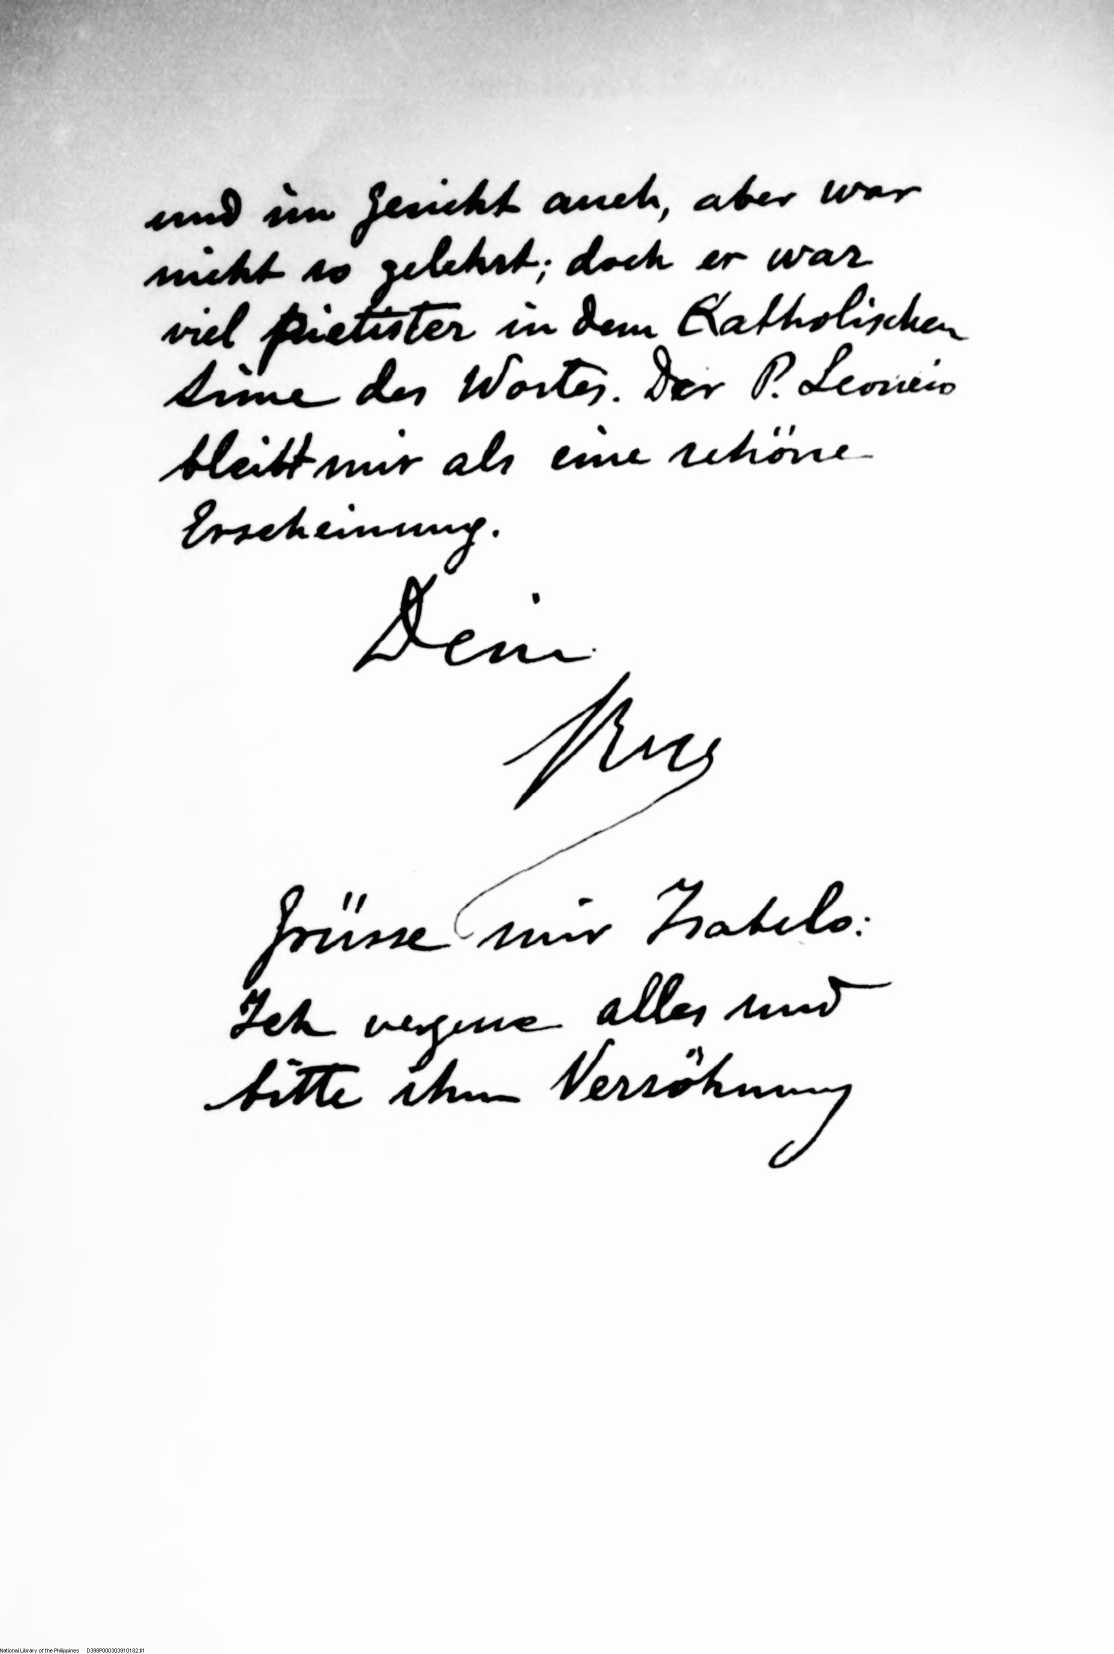 und im Gesicht auch, aber war
nicht so gelehrt; doch er war
viel pietister in dem Katholischen
Sinne des Wortes. Der P. Leoncio
bleibt mir als eine schöne
Erscheinung.
Dein
Grüsse mir Isabelo:
Ich vergesse alles und
bitte ihm Versöhnung
National Library of the Philippines